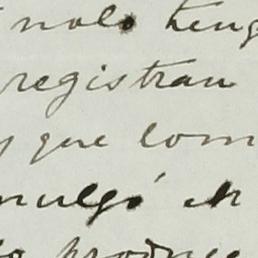 nolo teng
registran
y que com
mulgó en
produce